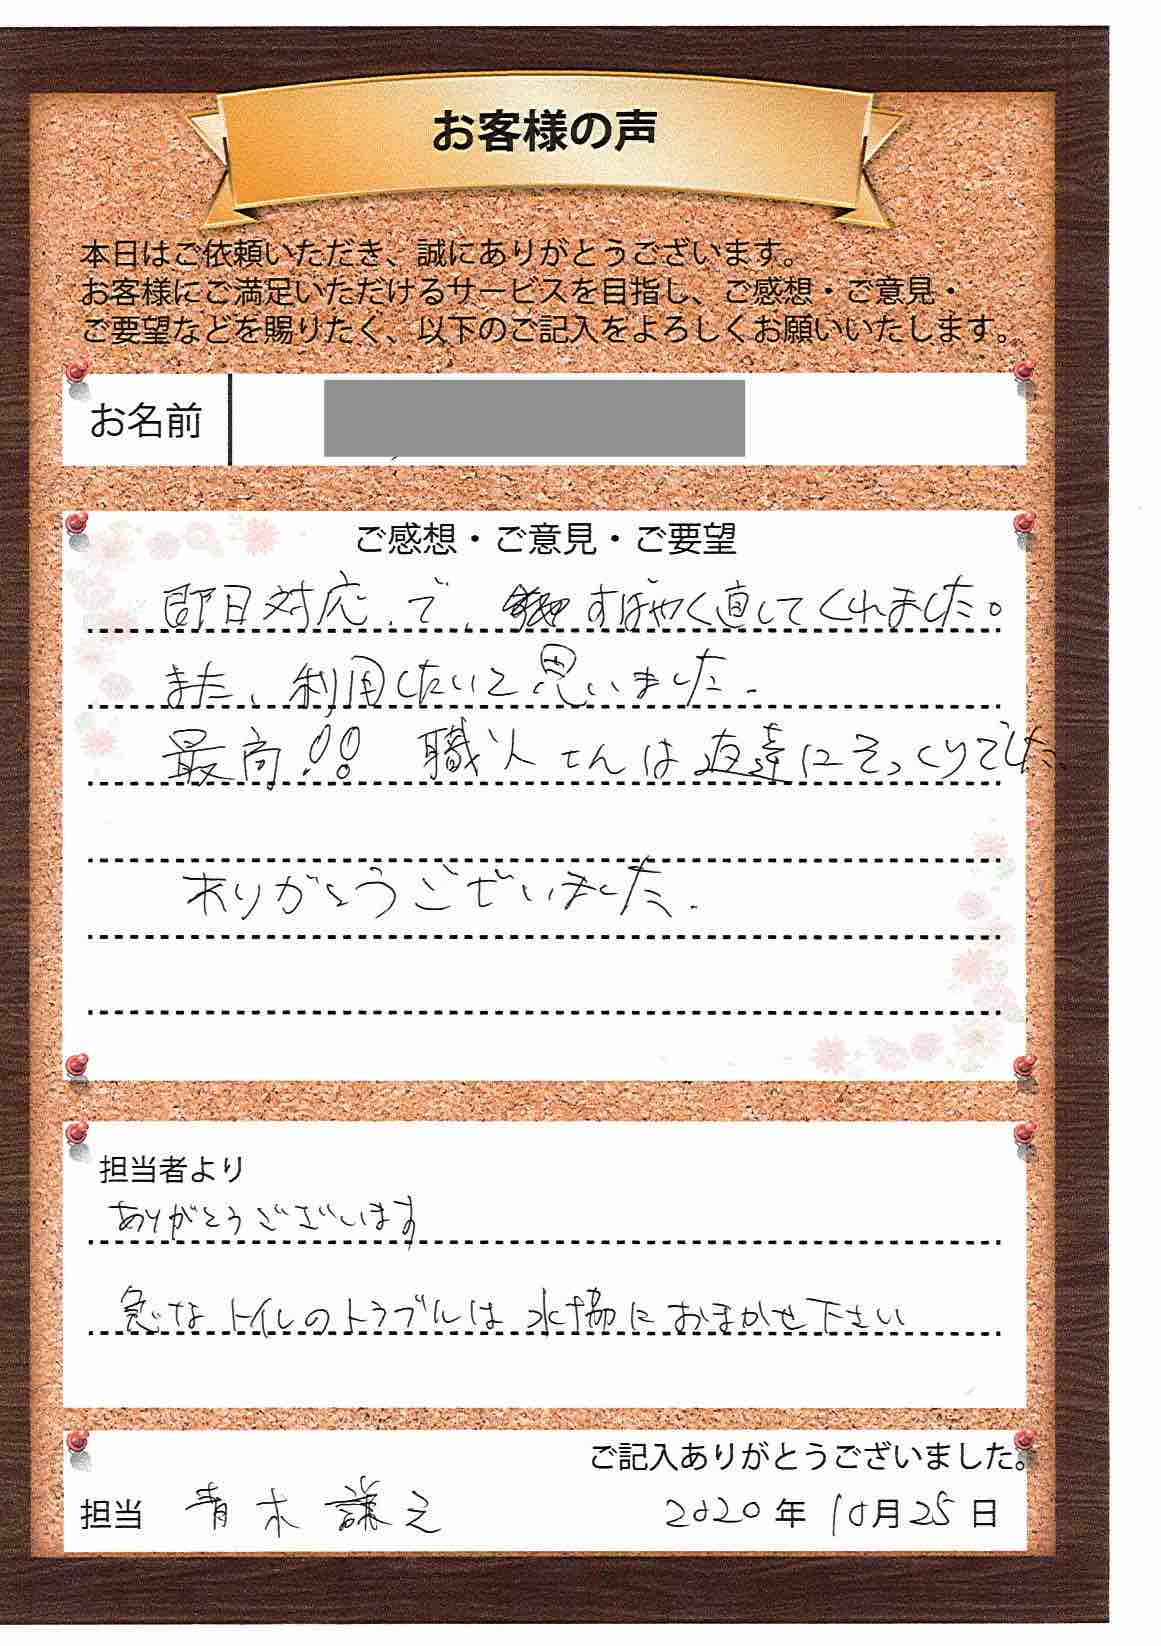 お客様の声
本日はご依頼いただき、誠にありがとうございます。
お客様にご満足いただけるサービスを目指し、ご感想・ご意見・
ご要望などを賜りたく、以下のご記入をよろしくお願いいたします。
お名前
ご感想・ご意見・ご要望
即日対応、で、すばやく直してくれました。
また、利用したいと思いました.
最高!! 職人さんは友達にそっくりでした.
ありがとうございました.
担当者より
ありがとうございます
急なトイレのトラブルは水協におまかせ下さい
ご記入ありがとうございました。
担当 青木謙之 2020年10月25日